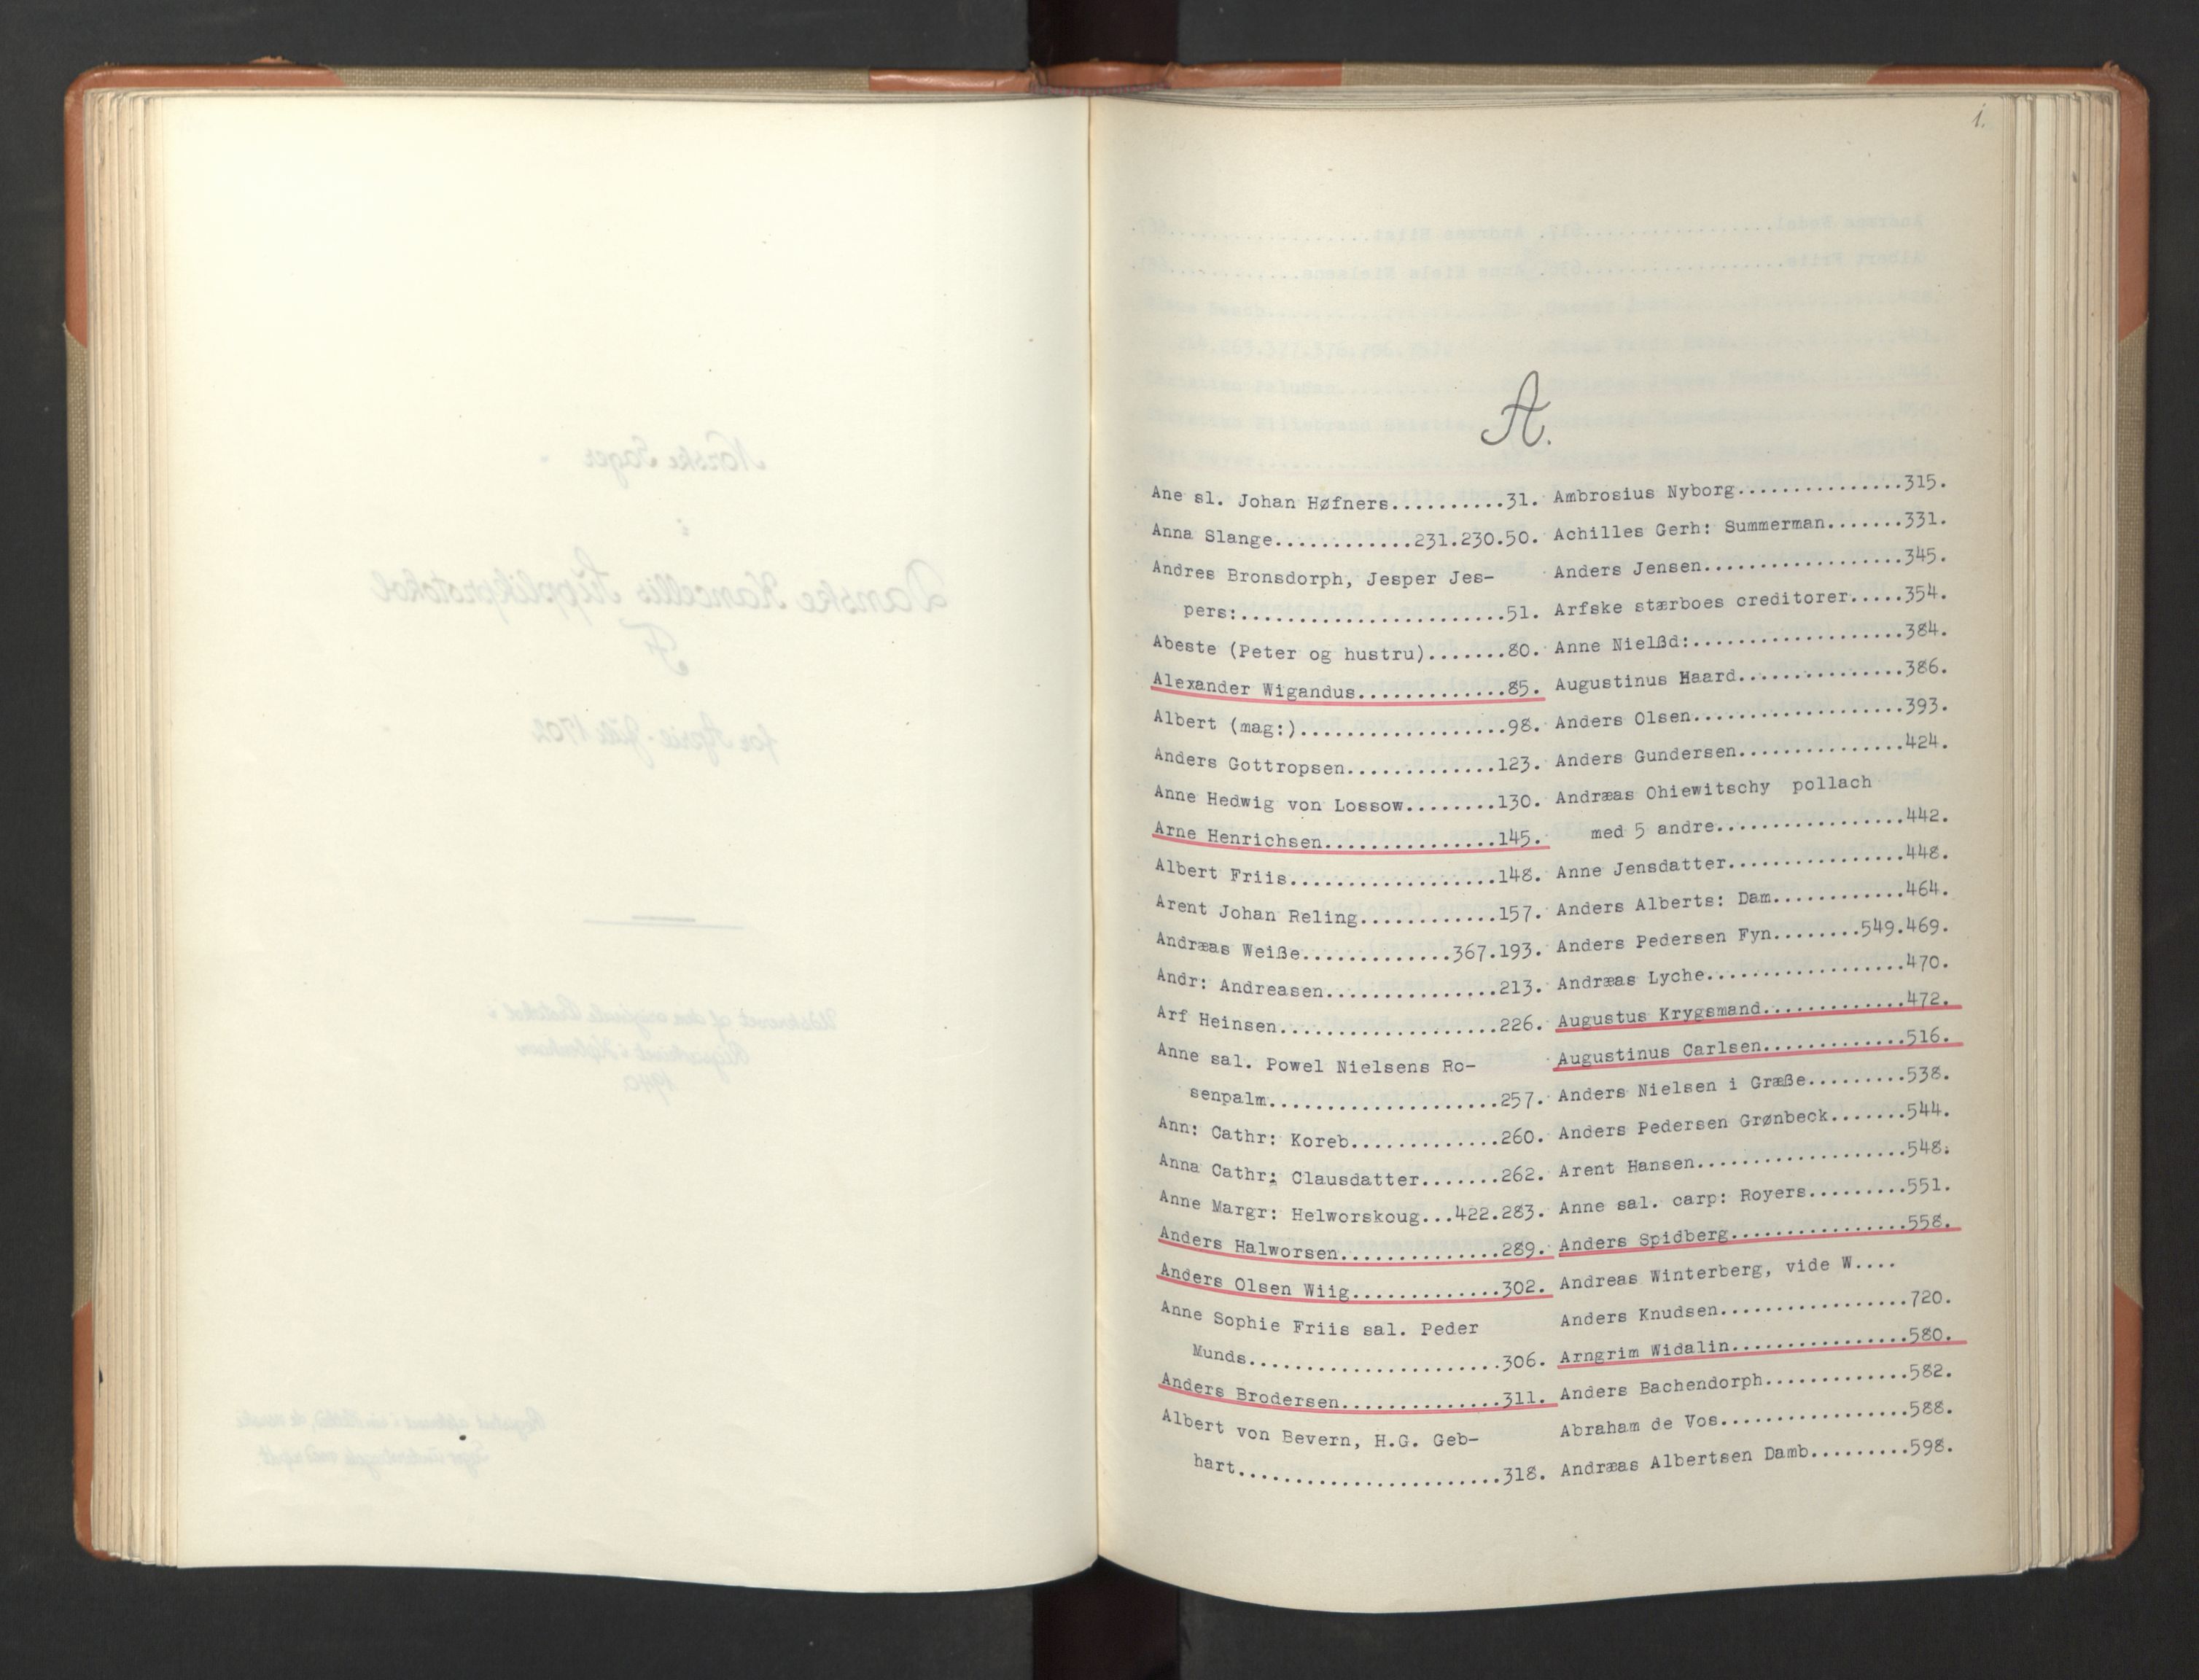 1.
A.
Ane sl. Johan Høfners..........31.
Anna Slange............231.230.50.
Andres Bronsdorph, Jesper Jes-
pers:.......................51.
Abeste (Peter og hustru).......80.
Alexander Wigandus.............85.
Albert (mag:)..................98.
Anders Gottropsen.............123.
Anne Hedwig von Lossow........130.
Arne Henrichsen...............145.
Albert Friis..................148.
Arent Johan Reling............157.
Andræas Weiße.............367.193.
Andr: Andreasen...............213.
Arf Heinsen...................226.
Anne sal. Powel Nielsens Ro-
senpalm....................257.
Ann: Cathr: Koreb.............260.
Anna Cathr: Clausdatter.......262.
Anne Margr: Helworskoug...422.283.
Anders Halworsen..............289.
Anders Olsen Wiig.............302.
Anne Sophie Friis sal. Peder
Munds......................306.
Anders Brodersen..............311.
Albert von Bevern, H.G. Geb-
hart.......................318.
Ambrosius Nyborg...............315.
Achilles Gerh: Summerman.......331.
Anders Jensen..................345.
Arfske stærboes creditorer.....354.
Anne Nielßd:...................384.
Augustinus Haard...............386.
Anders Olsen...................393.
Anders Gundersen...............424.
Andræas Ohiewitschy pollach
med 5 andre.................442.
Anne Jensdatter................448.
Anders Alberts: Dam............464.
Anders Pedersen Fyn........549.469.
Andræas Lyche..................470.
Augustus Krygsmand.............472.
Augustinus Carlsen.............516.
Anders Nielsen i Græße.........538.
Anders Pedersen Grønbeck.......544.
Arent Hansen...................548.
Anne sal. carp: Royers.........551.
Anders Spidberg................558.
Andreas Winterberg, vide W....
Anders Knudsen.................720.
Arngrim Widalin................580.
Anders Bachendorph.............582.
Abraham de Vos.................588.
Andræas Albertsen Damb.........598.